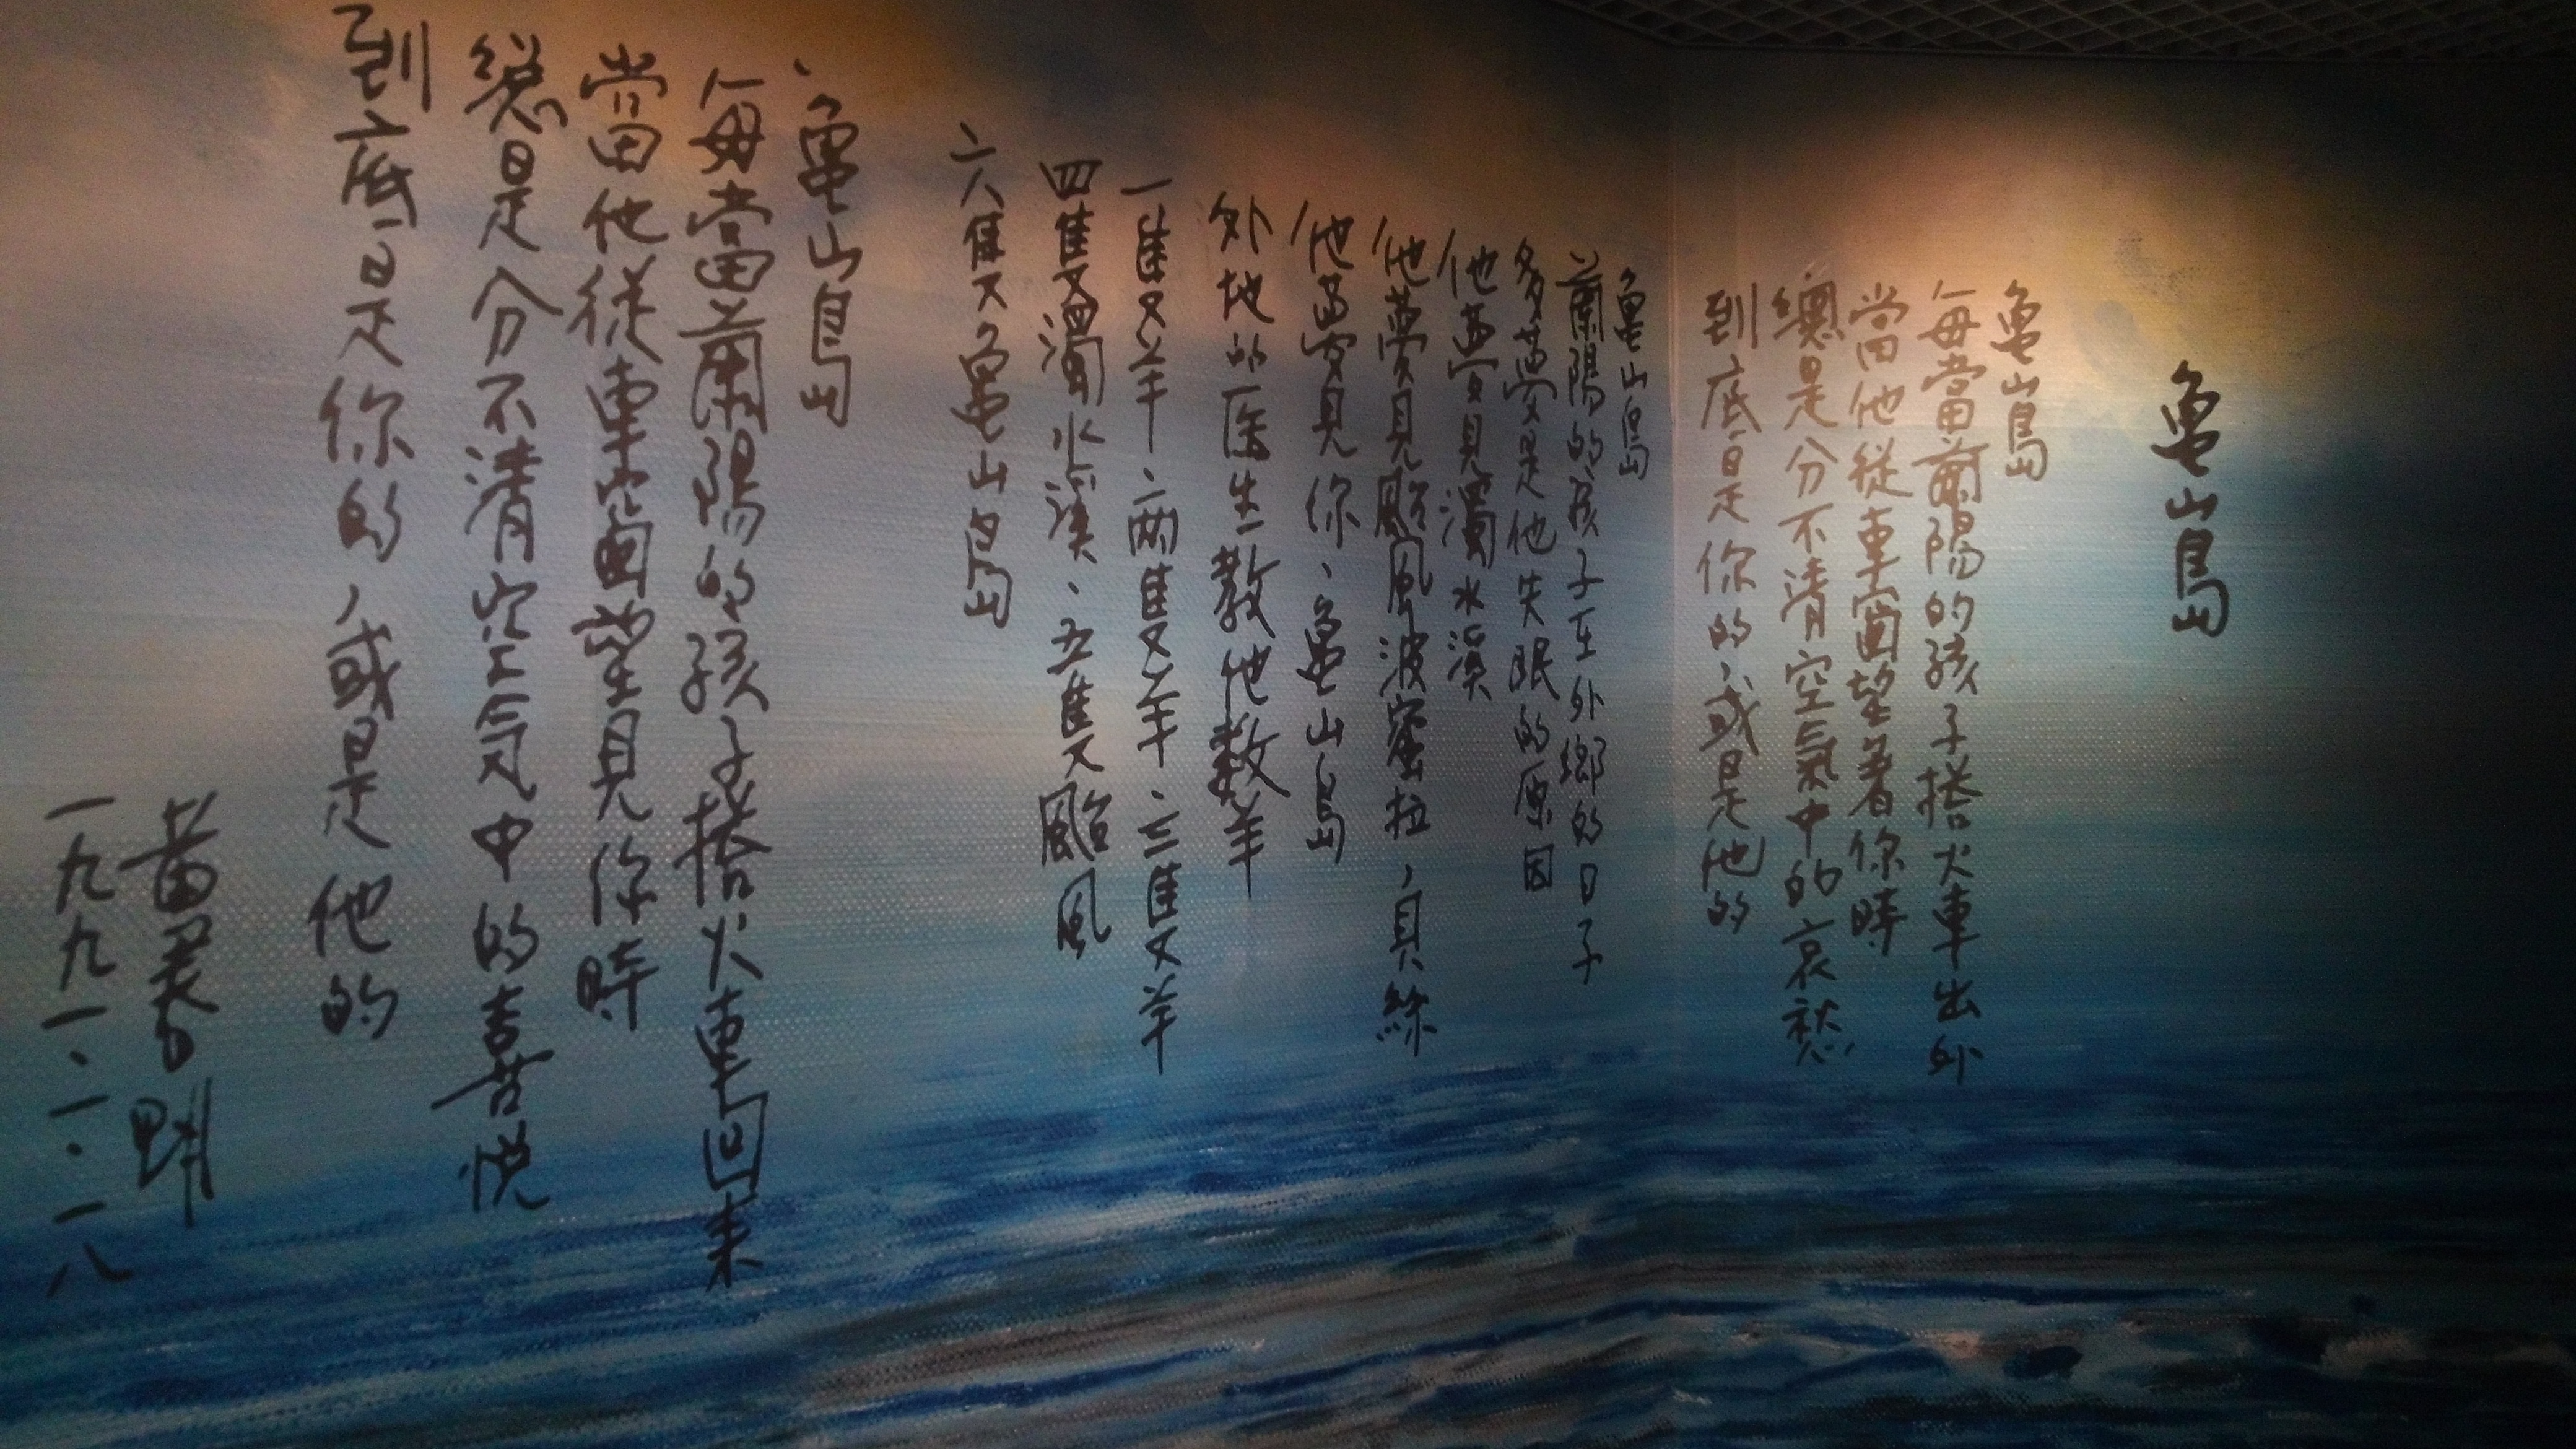 龜山島
龜山島
每當蘭陽的孩子搭火車出外
當他從車窗望著你時
總是分不清空氣中的哀愁
到底是你的，或是他的
龜山島
蘭陽的孩子在外鄉的日子
多夢是他失眠的原因
他夢見濁水溪
他夢見颱風波蜜拉，貝絲
他夢見你，龜山島
外地的医生教他數羊
一隻羊、兩隻羊、三隻羊
四隻濁水溪、五隻颱風
六隻龜山島
龜山島
每當蘭陽的孩子搭火車回來
當他從車窗望見你時
總是分不清空气中的喜悅
到底是你的，或是他的
黃春明
一九九一.一.一八